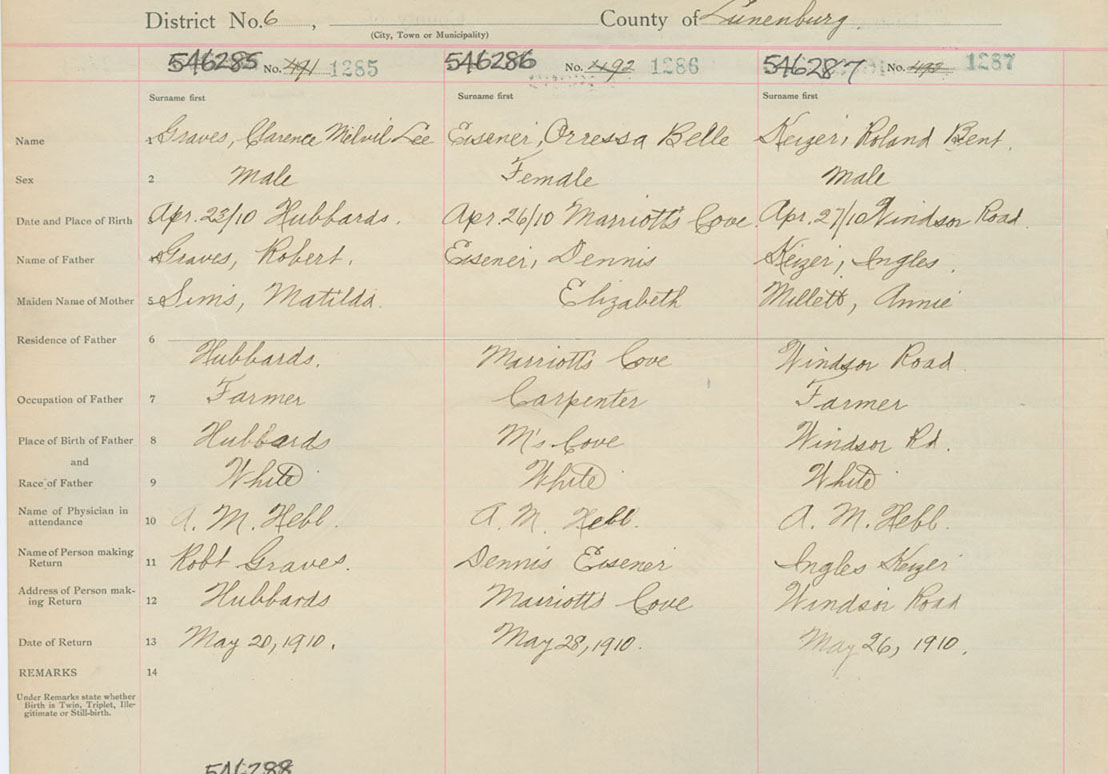 District No. 6 , County of Lunenburg
(City, Town or Municipality)
546285 No. 491 1285 546286 No. 492 1286 546287 No. 493 1287
Surname first Surname first Surname first
Name 1 Graves, Clarence Milvil Lee Eisener, Orressa Belle Keizer, Roland Bent.
Sex 2 Male Female Male
Date and Place of Birth Apr. 23/10 Hubbards. Apr. 26/10 Marriott's Cove. Apr. 27/10 Windsor Road.
Name of Father 4 Graves, Robert. Eisener, Dennis Keizer, Ingles.
Maiden Name of Mother 5 Sims, Matilda. Elizabeth Millett, Annie
Residence of Father 6
Hubbards. Marriott's Cove Windsor Road
Occupation of Father 7 Farmer Carpenter Farmer
Place of Birth of Father 8 Hubbards M's Cove Windsor Rd.
and
Race of Father 9 White White White
Name of Physician in
attendance 10 A. M. Hebb. A. M. Hebb. A. M. Hebb.
Name of Person making
Return 11 Robt Graves. Dennis Eisener Ingles Keizer
Address of Person mak-
ing Return 12 Hubbards Marriott's Cove Windsor Road
Date of Return 13 May 20, 1910. May 28, 1910. May 26, 1910.
REMARKS 14
Under Remarks state whether
Birth is Twin, Triplet, Ille-
gitimate or Still-birth.
546288